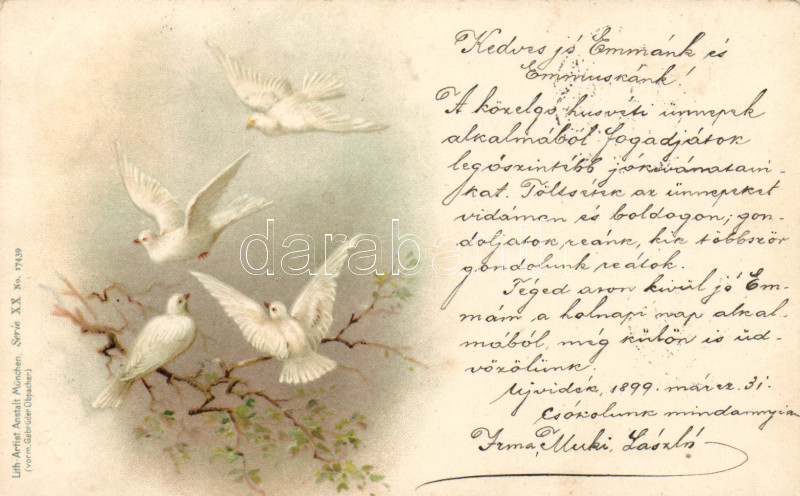 Kedves jó Emmánk és
Emmuskánk!
A közelgő husvéti ünnepek
alkalmából fogadjátok
legőszintébb jókivánatain-
kat. Töltsétek az ünnepeket
vidáman és boldogan; gon-
doljatok reánk, kik többször
gondolunk reátok.
Téged azon kivül jó Em-
mám a holnapi nap alkal-
mából, még külön is üd-
vözölünk.
Ujvidék, 1899. márcz. 31.
Csókolunk mindannyian
Irma, Muki, László
Lith.-Artist Anstalt München, Serie XX No. 17439
(vorm. Gebrüder Obpacher)
darabanth